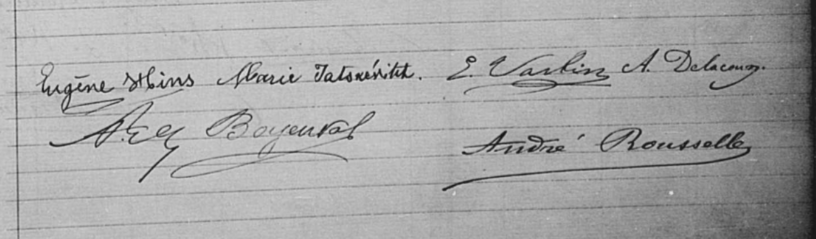 Eugène Hins Marie Iatskévitch. E. Varlin A. Delacour
Boyenval André Rousselle